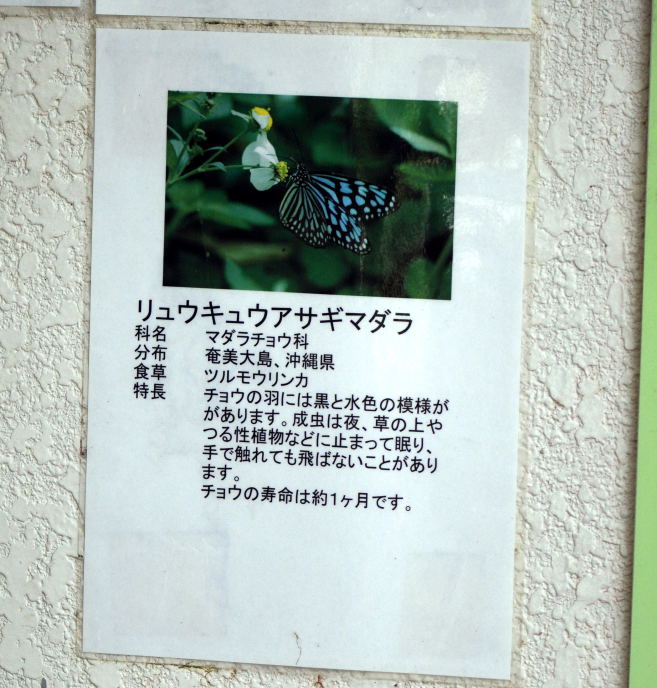 リュウキュウアサギマダラ
科名 マダラチョウ科
分布 奄美大島、沖縄県
食草 ツルモウリンカ
特長 チョウの羽には黒と水色の模様が
があります。成虫は夜、草の上や
つる性植物などに止まって眠り、
手で触れても飛ばないことがあり
ます。
チョウの寿命は約1ヶ月です。